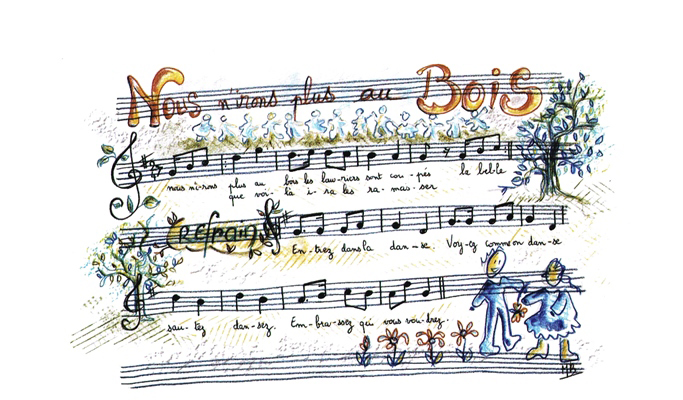 Nous n'irons plus au Bois
nous ni-rons plus au bois les lau-riers sont cou-pés la bel-le
que voi-là i-ra les ra-mas-ser
Refrain
En-trez dans la dan-se. Voy-ez comme on dan-se
sau-tez dan-sez. Em-bras-sez qui vous vou-drez.
MB